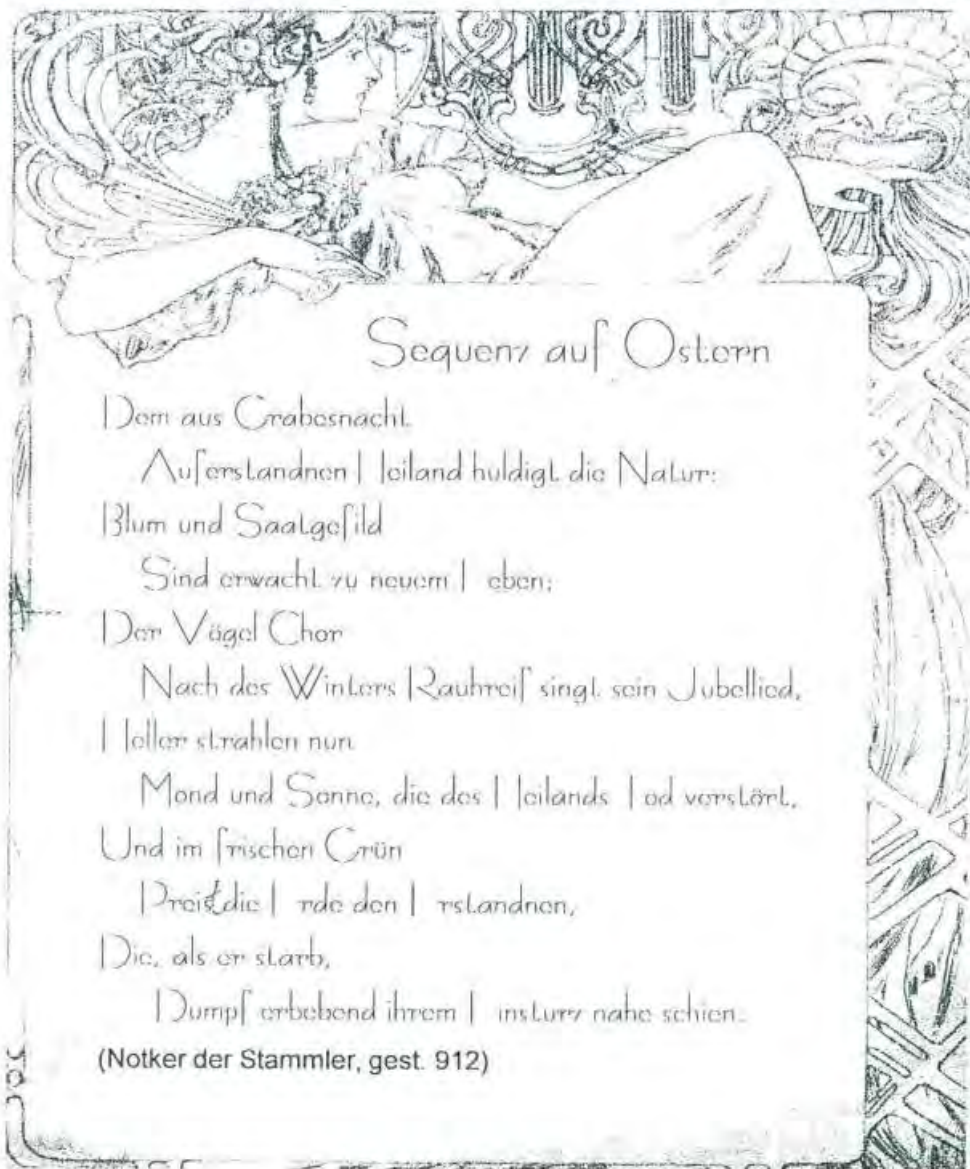 Sequenz auf Ostern
Dem aus Grabesnacht
Auferstandnen Heiland huldigt die Natur:
Blum und Saatgefild
Sind erwacht zu neuem Leben;
Der Vögel Chor
Nach des Winters Rauhreif singt sein Jubellied,
Heller strahlen nun
Mond und Sonne, die des Heilands Tod verstört,
Und im frischen Grün
Preist die Erde den Erstandnen,
Die, als er starb,
Dumpf erbebend ihrem Einsturz nahe schien.
(Notker der Stammler, gest. 912)